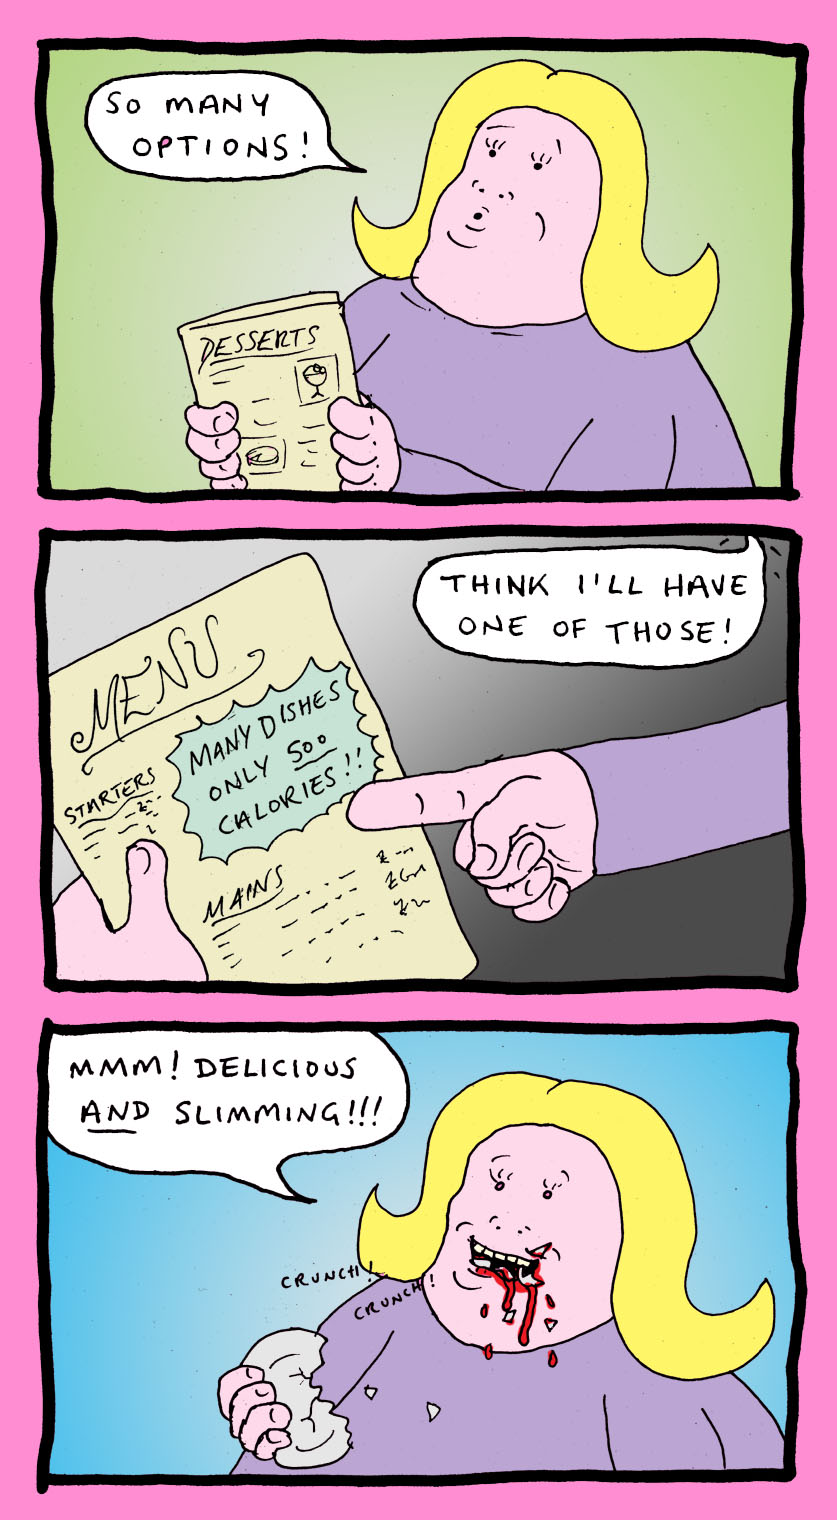 SO MANY
OPTIONS!
DESSERTS
THINK I'LL HAVE
ONE OF THOSE!
MENU
MANY DISHES
ONLY 500
CALORIES!!
STARTERS
MAINS
MMM! DELICIOUS
AND SLIMMING!!!
CRUNCH!
CRUNCH!